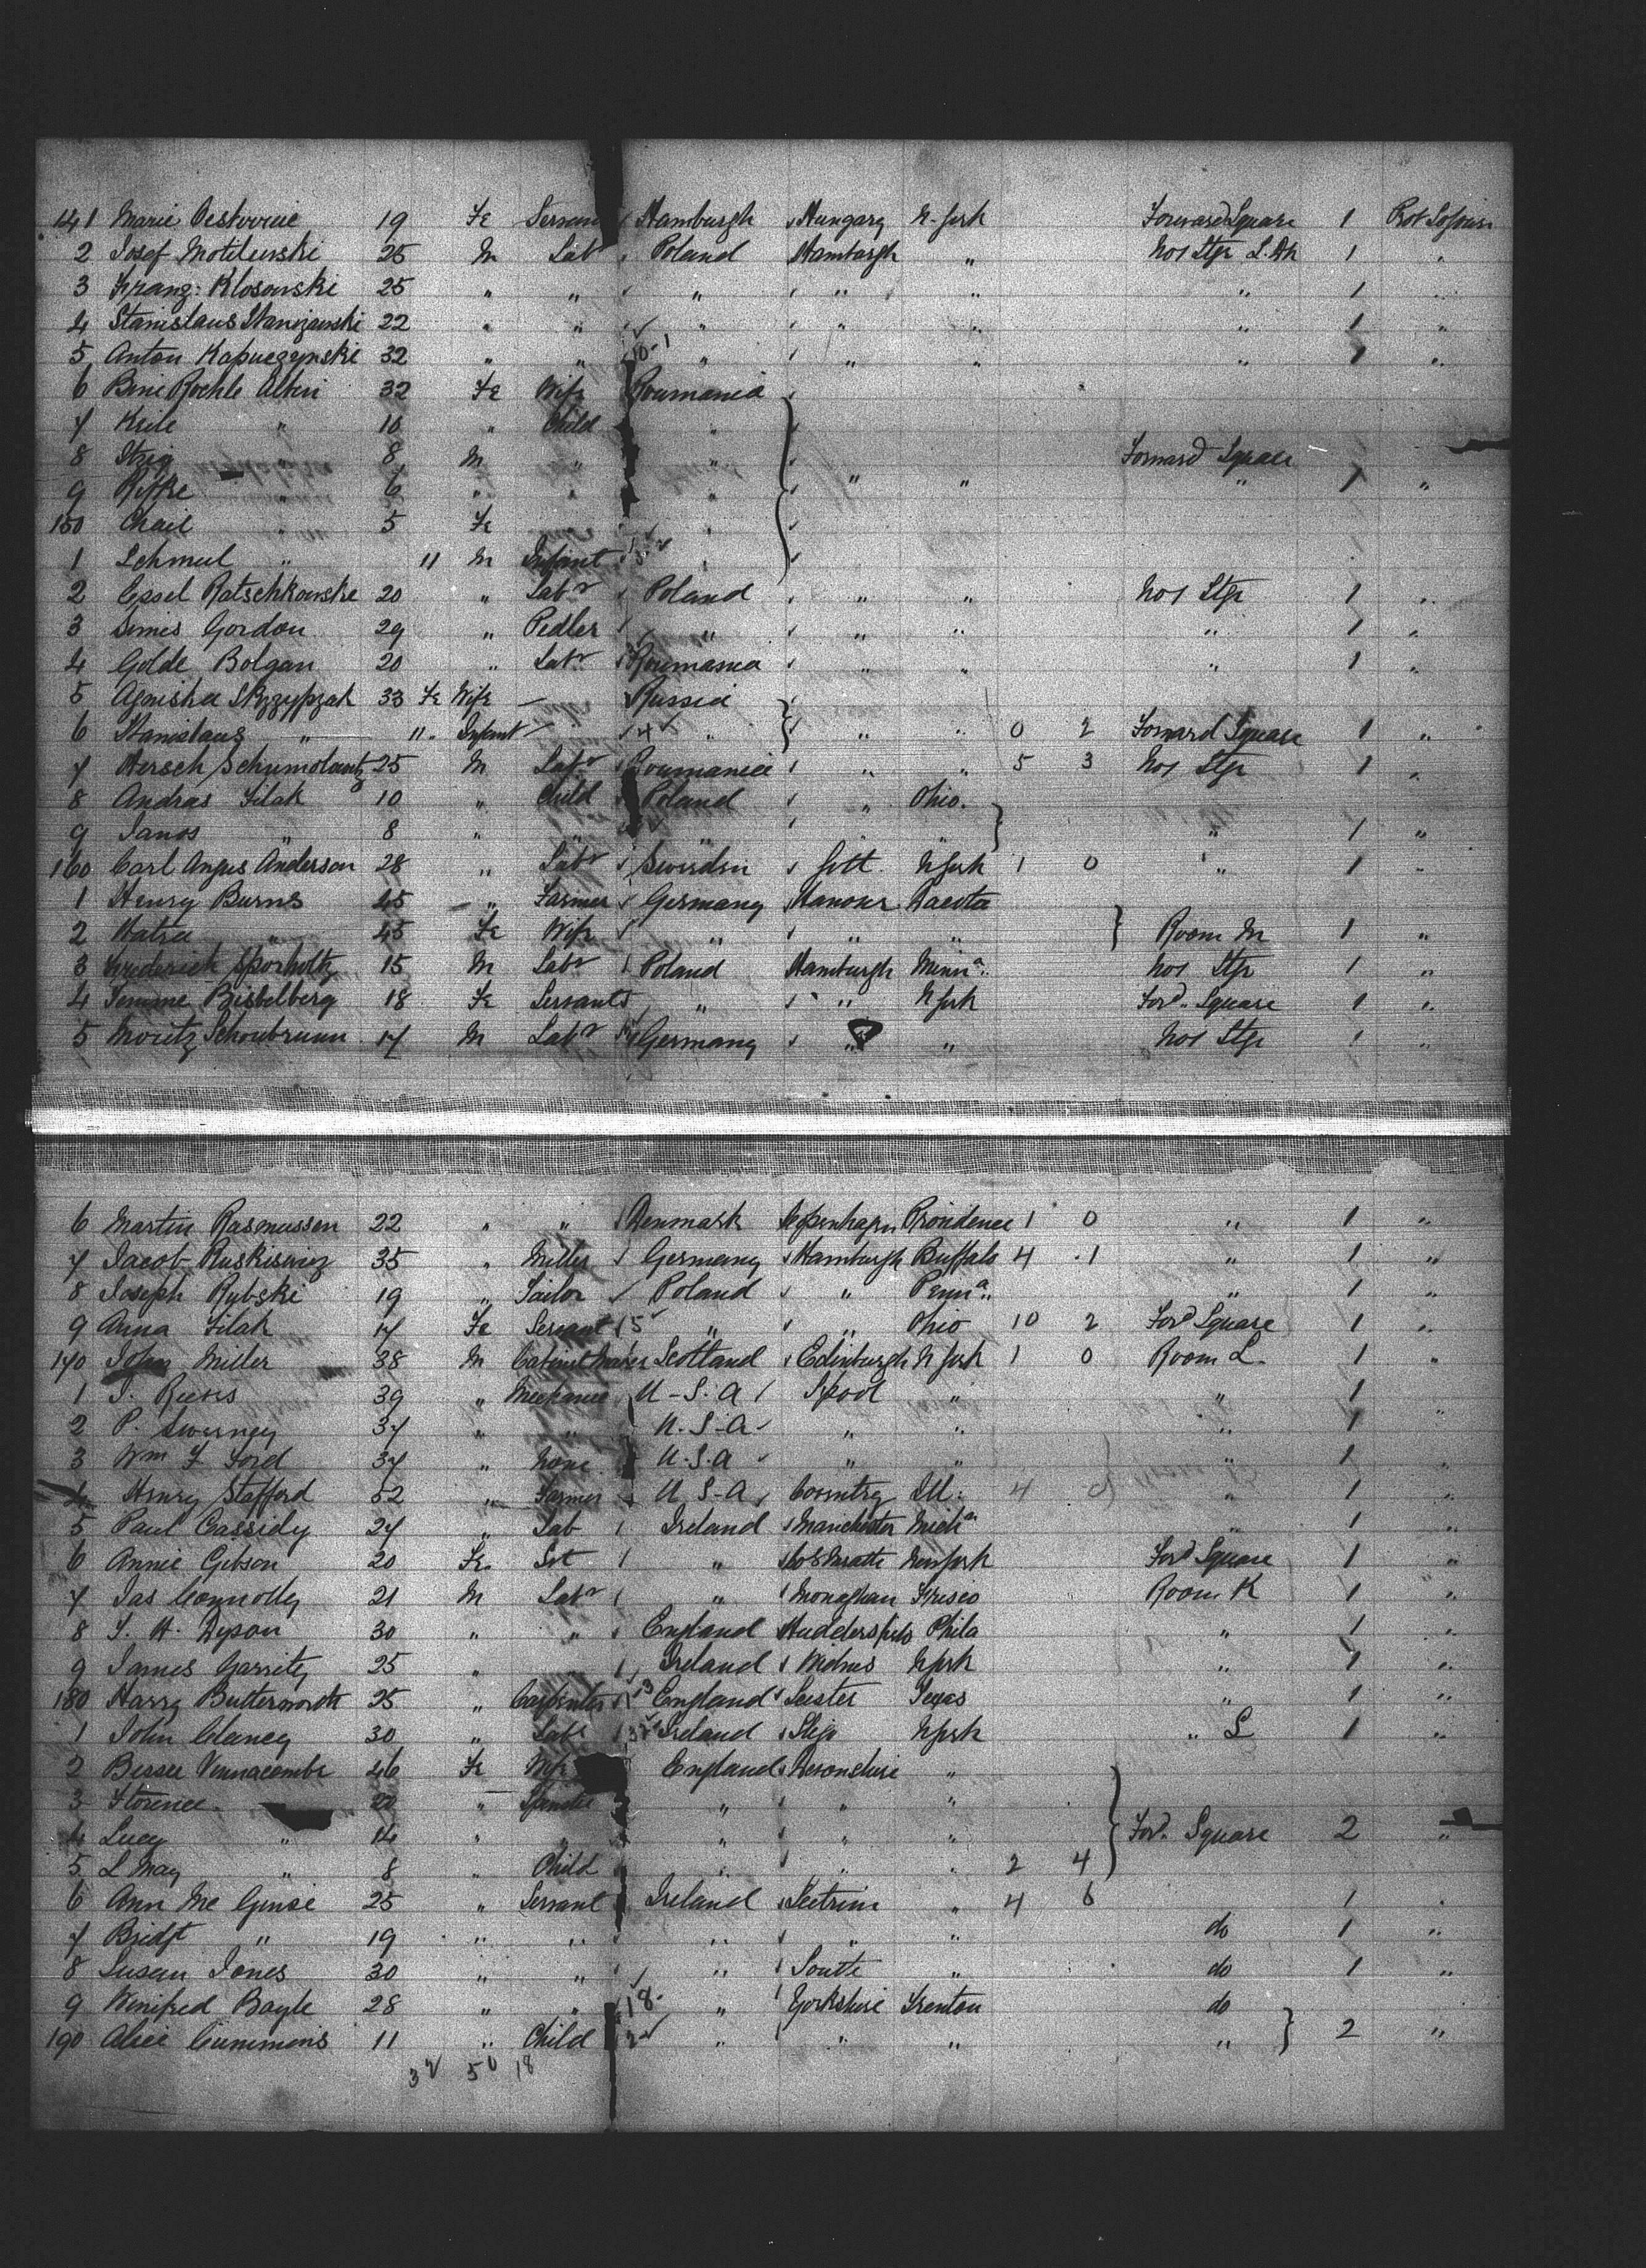 141 Marie 19 Fe Servant Hamburgh Hungary N-York Forward Square 1 Prot Sojourn
2 Josef Motilewski 25 M Labr Poland Hamburgh " No 1 Stge 1 "
3 Franz: Klosowski 25 " " " " " " 1 "
4 Stanislaus 22 " " " " " " 1 "
5 Anton Kapuczynski 32 " " 10-1 " " " " 1 "
6 Beni Rochle 32 Fe Wife Roumania
7 " 10 " Child "
8 " 8 M " " Forward Square
9 Rifke " 6 " " " " " " 1 "
150 Chail " 5 Fe "
1 Schmul " 11 M Infant "
2 Essel Ratschkowske 20 " Labr Poland " " No 1 Stge 1 "
3 Simes Gordon 29 " Pedler " " " " 1 "
4 Golde Bolgan 20 " Labr Roumania " " " 1 "
5 Agniska 33 Fe Wife — Russia
6 Stanislaus " 11 Infant 4 " " " 0 2 Forward Square 1 "
7 Hersch 25 M Labr Roumania " " 5 3 No 1 Stge 1 "
8 Andras Filak 10 " Child Poland " Ohio.
9 Janos " 8 " " " " " " 1 "
160 Carl Angus Anderson 28 " Labr Sweeden Gott. N York 1 0 " 1 "
1 Henry Burns 45 " Farmer Germany Hanover Dacota
2 " 45 Fe Wife " " " Room M 1 "
3 Frederich Sporholtz 15 M Labr Poland Hamburgh Minna No 1 Stge 1 "
4 Bisbelberg 18 Fe Servant " " N York Ford. Square 1 "
5 Moritz Schonbrunn 17 M Labr Germany " " No 1 Stge 1 "
6 Martin Rasmussen 22 " " Denmark Copenhagen Providence 1 0 " 1 "
7 Jacob Ruskiswiz 35 " Miller Germany Hamburgh Buffalo 4 1 " 1 "
8 Joseph Rybski 19 " Tailor Poland " Penna " 1 "
9 Anna Filak 17 Fe Servant 5 " " Ohio 10 2 Ford Square 1 "
170 John Miller 38 M Cabinet Maker Scotland Edinburgh N York 1 0 Room L. 1 "
1 J. 39 " Mechanic U-S.A Lpool " " 1
2 P. Sweeney 37 " " U.S-A " " " 1 "
3 Wm F Ford 37 " None U.S.A " " " 1 "
4 Henry Stafford 52 " Farmer U S-A Coventry Ill: 4 0 " 1 "
5 Paul Cassidy 27 " Lab Ireland Manchester Michn " 1 "
6 Annie Gibson 20 Fe. Svt " Co Meath New York Ford Square 1 "
7 Jas Connolly 21 M Labr " Monaghan Frisco Room K 1 "
8 J. H. Dyson 30 " " England Huddersfield Phila " 1 "
9 James Garrity 25 " " Ireland Widnes N York " 1 "
180 Harry Butterworth 25 " Carpenter 13 England Lester Texas " 1 "
1 John Clancy 30 " Labr Ireland Sligo N York " L 1 "
2 Bessie Vinnacombe 46 Fe Wife England Devonshire "
3 Florence 20 " Spinster " " "
4 Lucy " 14 " " " " " Ford. Square 2 "
5 L May " 8 " Child " " " 2 4
6 Ann Mc Ginse 25 " Servant Ireland Leetrim " 4 6 1 "
7 Bridgt " 19 " " " " " do 1 "
8 Susan Jones 30 " " " South " do 1 "
9 Winifred Boyle 28 " " 18 " Yorkshire Trenton do
190 Alice Cummins 11 " Child 2 " " " " 2 "
32 50 18